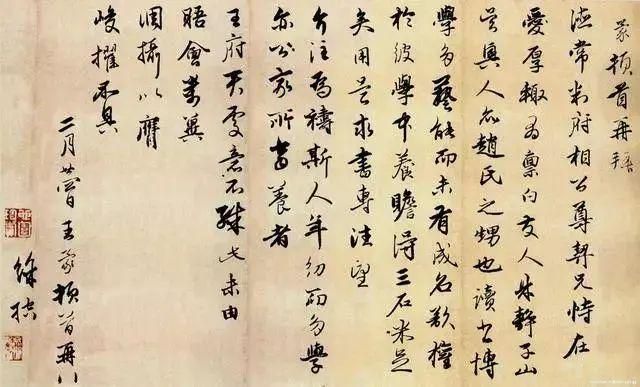 蒙頓首再拜
德常判府相公尊契兄恃在
愛厚輒有稟白友人林靜子山
吳興人乃趙氏之甥也讀書博
學多藝能而未有成名欲權
於彼學中養贍得三石米足
矣用是求書專注望
介注為禱斯人年幼而多學
亦公家所當養者
王府天處意不殊此未由
晤會萬冀
調攝以膺
峻擢不具
二月廿日王蒙頓首再
徐